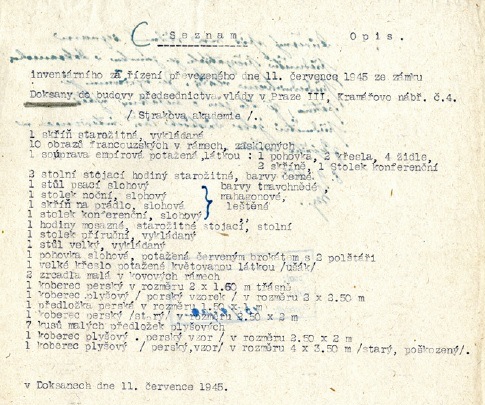 Seznam   Opis.
inventárního zařízení převezeného dne 11. července 1945 ze zámku
Doksany do budovy předsednictva vlády v Praze III, Kramářovo nábř. č.4.
/ Strakova akademia /.
1 skříň starožitná, vykládaná
10 obrazů francouzských v rámech, zasklených
1 souprava empírová potažená látkou : 1 pohovka, 2 křesla, 4 židle,
2 skříně, 1 Stolek konferenční
3 stolní stojací hodiny starožitné, barvy černé
1 stůl psací slohový   barvy tmavohnědé
1 stolek noční, slohový   mahagonové,
1 skříň na prádlo, slohová   leštěné
1 stolek konferenční, slohový
1 hodiny mosazné, starožitné stojací, stolní
1 stolek příruční, vykládaný
1 stůl velký, vykládaný
1 pohovka slohová, potažená červeným brokátem s 2 polštáři
1 velké křeslo potažené květovanou látkou /ušák/
2 zrcadla malá v kovových rámech
1 koberec perský v rozměru 2 x 1.60 m třásně
1 koberec plyšový / perský vzorek / v rozměru 2 x 2.50 m
1 předložka perská v rozměru 1.50 x m
1 koberec perský /starý/ v rozměru 2.50 x 2 m
7 kusů malých předložek plyšových
1 koberec plyšový . perský vzor / v rozměru 2.50 x 2 m
1 koberec plyšový / perský,vzor/ v rozměru 4 x 3.50 m /starý, poškozený/.
v Doksanech dne 11. července 1945.